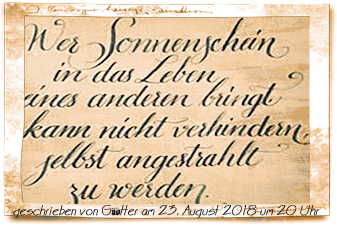 Wer Sonnenschein
in das Leben
eines anderen bringt
kann nicht verhindern,
selbst angestrahlt
zu werden.
geschrieben von Götter am 23. August 2018 um 20 Uhr